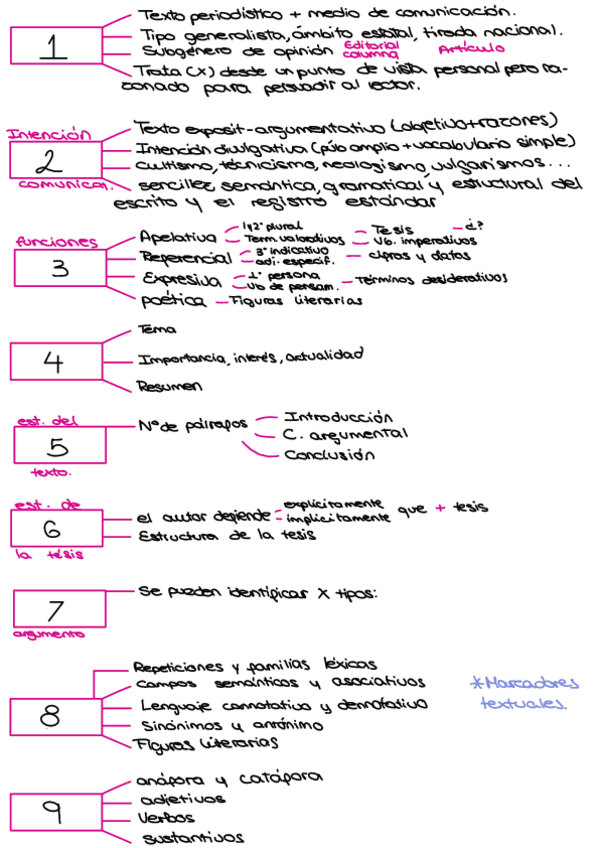 1
Texto periodístico + medio de comunicación.
Tipo generalista, ámbito estatal, tirada nacional.
Subgénero de opinión Editorial columna Artículo
Trata (x) desde un punto de vista personal pero ra-
zonado para persuadir al lector.
Intención
2
comunica.
Texto exposit-argumentativo (objetivo+razones)
Intención divulgativa (púb amplio + vocabulario simple)
Cultismo, tecnicismo, neologismo, vulgarismos...
sencillez semántica, gramatical y estructural del
escrito y el registro estándar
funciones
3
Apelativa 1y2º plural Term. valorativos Tesis Vb. imperativos ¿?
Referencial 3º indicativo adj. especif. cifras y datos
Expresiva 1º persona Vb de pensam. Términos desiderativos
poética Figuras literarias
4
Tema
Importancia, interés, actualidad
Resumen
est. del
5
texto.
Nº de párrafos
Introducción
C. argumental
Conclusión
est. de
6
la tésis
el autor defiende explícitamente implícitamente que + tesis
Estructura de la tesis
7
argumento
Se pueden identificar X tipos:
8
Repeticiones y familias léxicas
Campos semánticos y asociativos
Lenguaje connotativo y dennotativo
Sinónimos y antónimo
Figuras literarias
*Marcadores
textuales.
9
anáfora y catáfora
adjetivos
Verbos
sustantivos